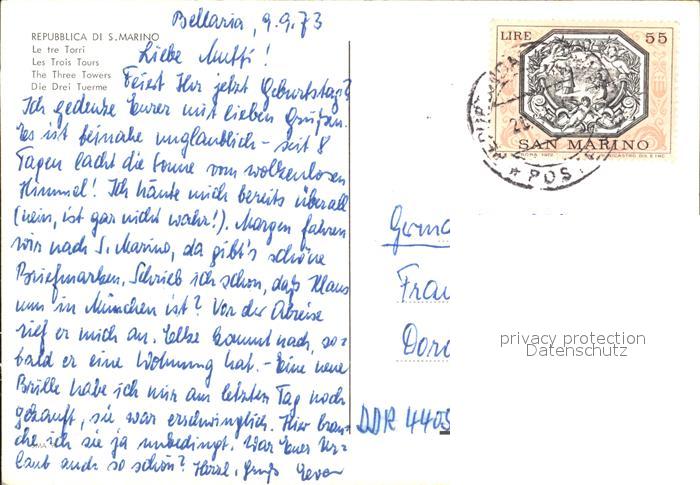 Bellaria, 9.9.73
REPUBBLICA DI S. MARINO
Le tre Torri
Les Trois Tours
The Three Towers
Die Drei Tuerme
Liebe Mutti!
Feiert Ihr jetzt Geburtstag?
Ich gedenke Eurer mit lieben Grüßen.
Es ist beinahe unglaublich - seit 8
Tagen lacht die Sonne vom wolkenlosen
Himmel! Ich häute mich bereits überall
(nein, ist gar nicht wahr!). Morgen fahren
wir nach S. Marino, da gibt's schöne
Briefmarken. Schrieb ich schon, daß Klaus
nun in München ist? Vor der Abreise
rief er mich an. Silke kommt nach, so=
bald er eine Wohnung hat. - Eine neue
Brille habe ich mir am letzten Tag noch
gekauft, sie war erschwinglich. Hier brau=
che ich sie ja unbedingt. War Euer Ur=
laub auch so schön? Herzl. Gruß
LIRE 55
SAN MARINO
POS
Germa
Frau
Doro
DDR 4405
privacy protection
Datenschutz